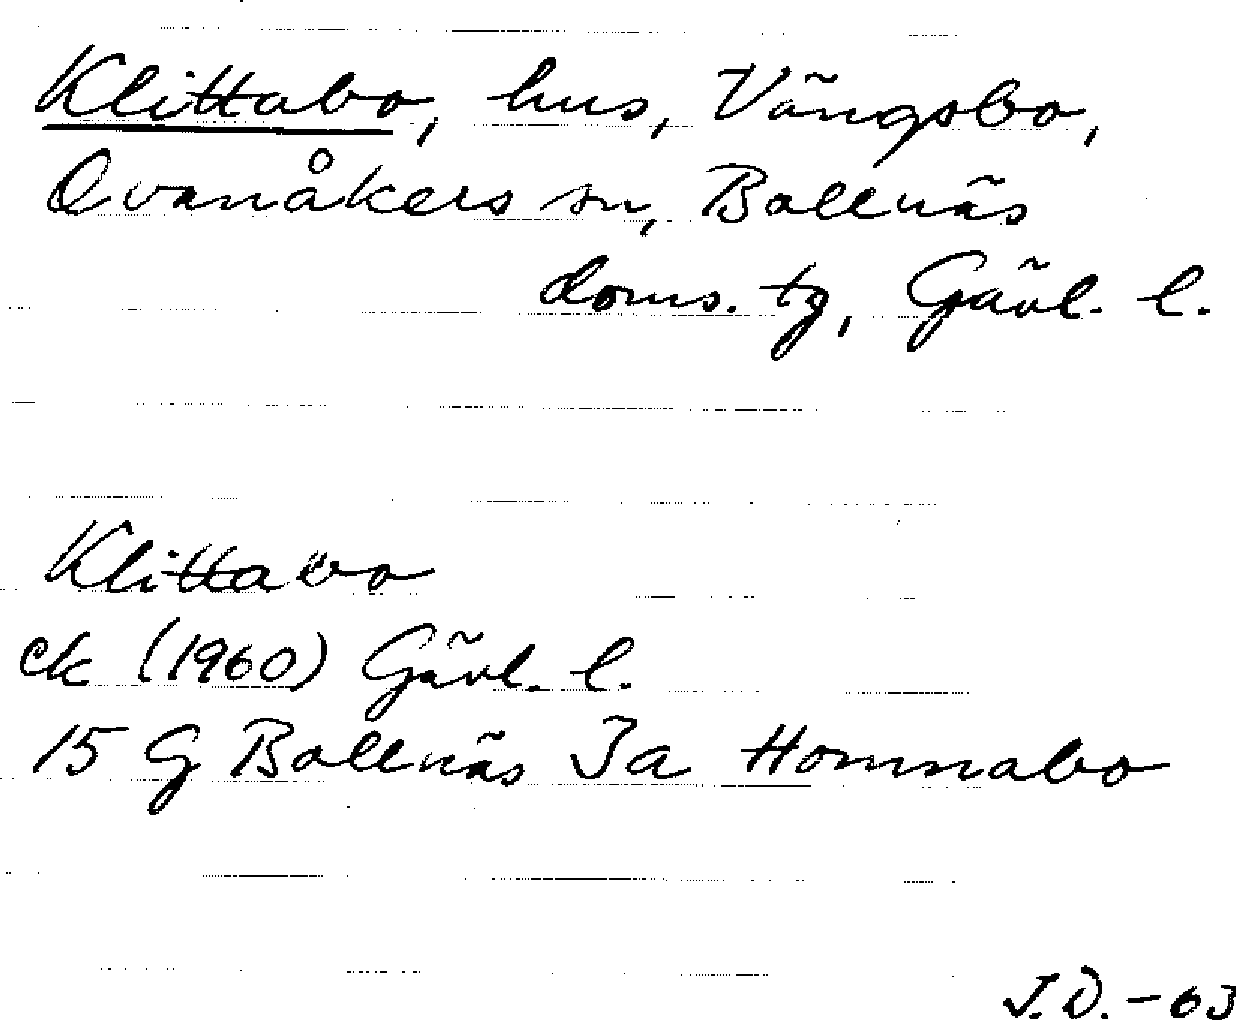 Klittabo, hus, Vängsbo,
Ovanåkers sn, Bollnäs
doms. tg, Gävl. l.
Klittabo
ek (1960) Gävl. l.
15 G Bollnäs Ja Homnabo
J.D. - 63